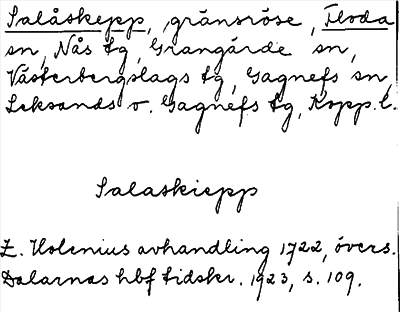 Salåskepp, gränsröse, Floda
sn, Nås tg, Grangärde sn,
Västerbergslags tg, Gagnefs sn,
Leksands o. Gagnefs tg, Kopp. l.
Salaskiepp
E. Holenius avhandling 1722, övers.
Dalarnas hbf tidskr. 1923, s. 109.